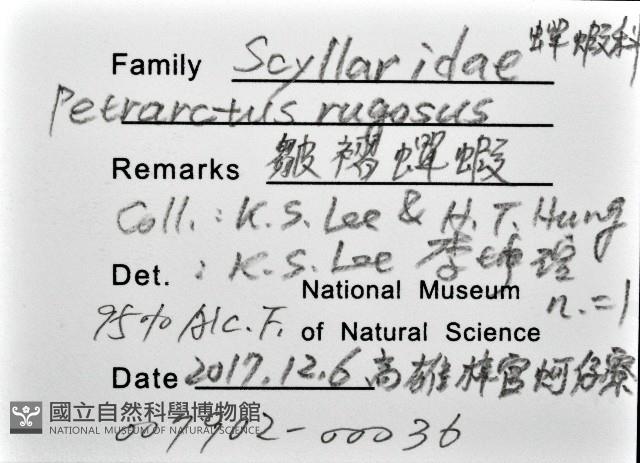 Family Scyllaridae 蟬蝦科
Petrarctus rugosus
Remarks 皺褶蟬蝦
Coll. : K. S. Lee & H. T. Hung
Det. : K. S. Lee 李坤瑄
National Museum n.=1
95% Alc. F. of Natural Science
Date 2017.12.6 高雄梓官蚵仔寮
國立自然科學博物館
NATIONAL MUSEUM OF NATURAL SCIENCE
007902-00036